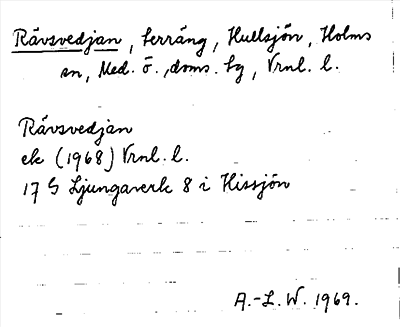 Rävsvedjan, terräng, Hullsjön, Holms
sn, Med. ö., doms. sg, Vrnl. l.
Rävsvedjan
ek (1968) Vrnl. l.
17 G Ljungaverk 8 i Hissjön
A.-L. W. 1969.